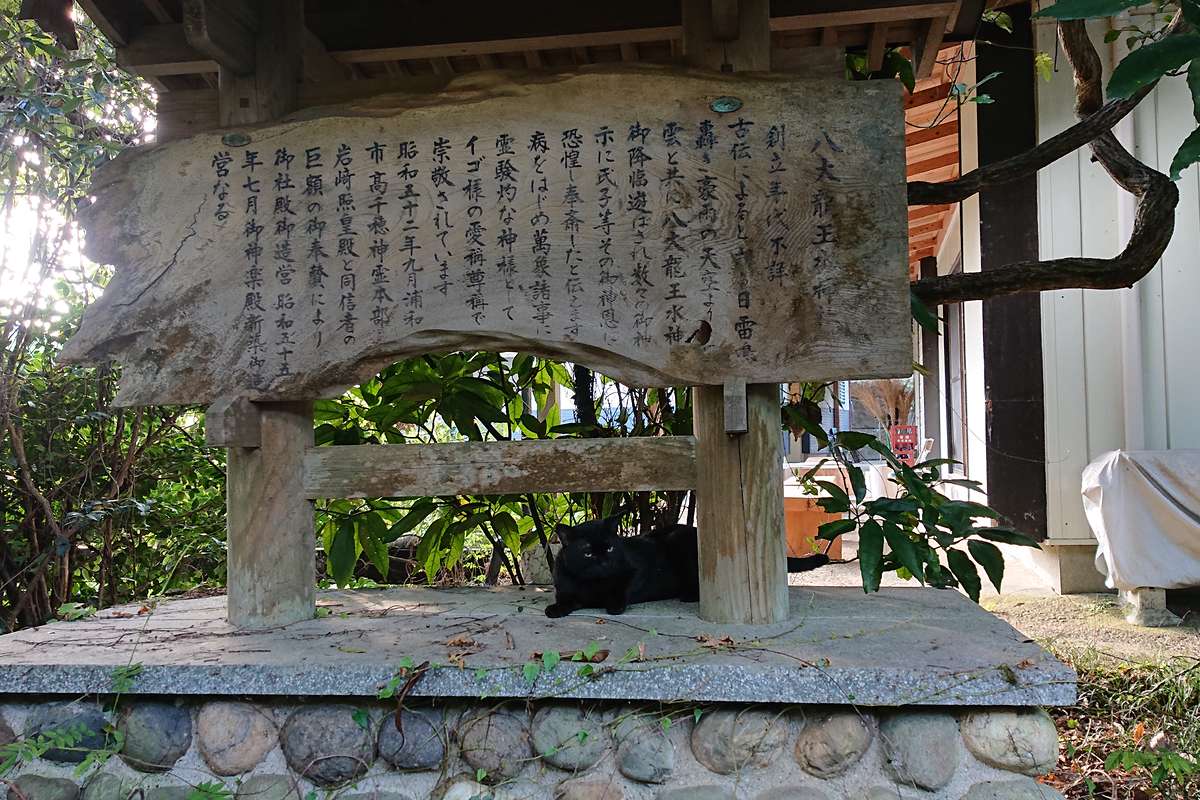 八大龍王水神
創立年代不詳
古伝によると 日雷鳴
轟き豪雨の天空より
雲と共に八大龍王水神
御降臨遊ばされ数々の御神
示に氏子等その御神恩に
恐惶し奉斎したと伝えます
病をはじめ萬象諸事に
霊験灼な神様として
イゴ様の愛称尊称で
崇敬されています
昭和五十二年九月浦和
市高千穂神霊本部
岩崎照皇殿と同信者の
巨額の御奉賛により
御社殿御造営昭和五十五
年七月御神楽殿新築御造
営なる